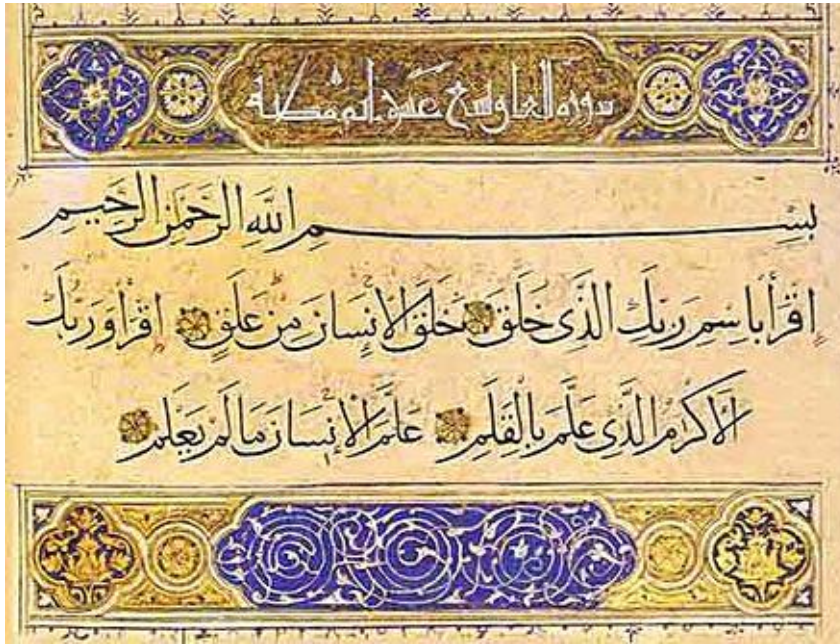 سورة العلق تسع عشر اية مكية
بِسْمِ اللَّهِ الرَّحْمَنِ الرَّحِيمِ
اِقْرَأْ بِاسْمِ رَبِّكَ الَّذِى خَلَقَ خَلَقَ الْإِنْسَانَ مِنْ عَلَقٍ اِقْرَأْ وَرَبُّكَ
الْأَكْرَمُ الَّذِى عَلَّمَ بِالْقَلَمِ عَلَّمَ الْإِنْسَانَ مَا لَمْ يَعْلَمْ